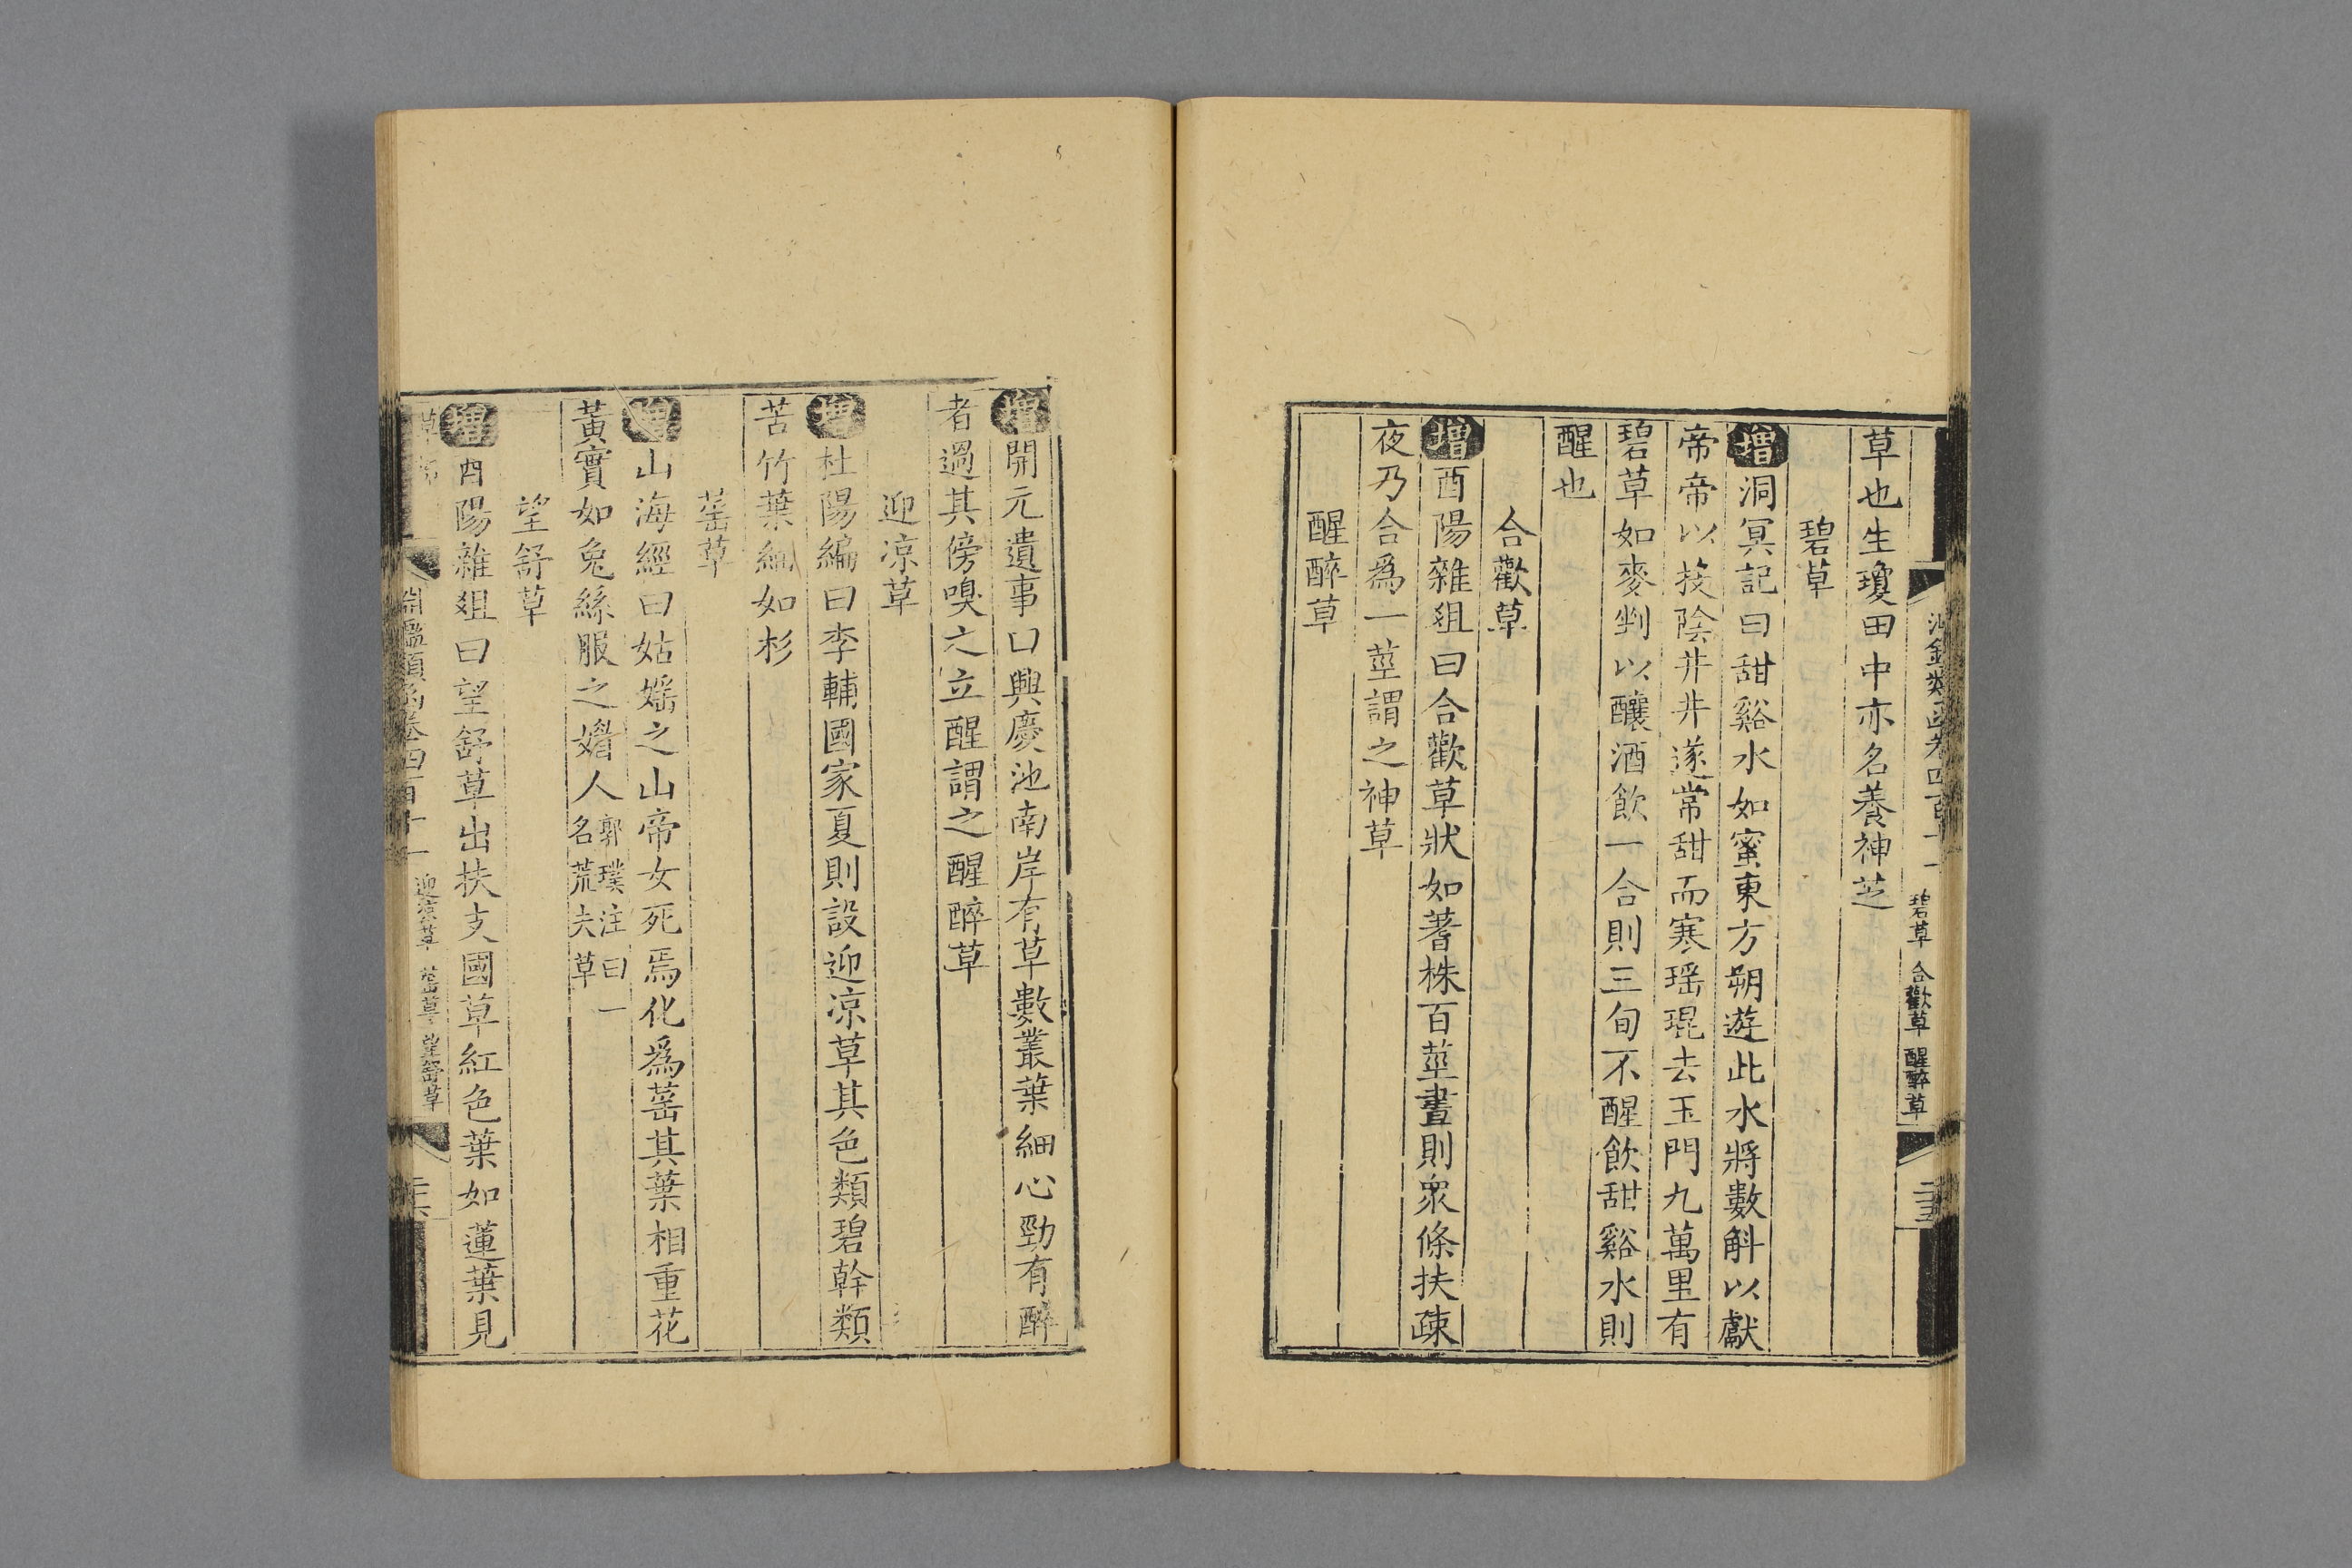 草也生瓊田中亦名養神芝
碧草
增洞冥記曰甜谿水如蜜東方朔遊此水將數斛以獻
帝帝以投陰井井遂常甜而寒瑶琨去玉門九萬里有
碧草如麥剉以釀酒飲一合則三旬不醒飲甜谿水則
醒也
合歡草
增酉陽雜俎曰合歡草狀如蓍株百莖晝則衆條扶疎
夜乃合爲一莖謂之神草
醒醉草
碧草 合歡草 醒醉草
二十五
增開元遺事曰興慶池南岸有草數叢葉細心勁有醉
者過其傍嗅之立醒謂之醒醉草
迎凉草
增杜陽編曰李輔國家夏則設迎凉草其色類碧幹類
苦竹葉細如杉
䔄草
增山海經曰姑媱之山帝女死焉化爲䔄其葉相重花
黃實如兔絲服之媚人郭璞注曰一
名荒夫草
望舒草
增酉陽雜俎曰望舒草出扶支國草紅色葉如蓮葉見
淵鑑類函卷四百十一 迎凉草 䔄草 望舒草
二十六